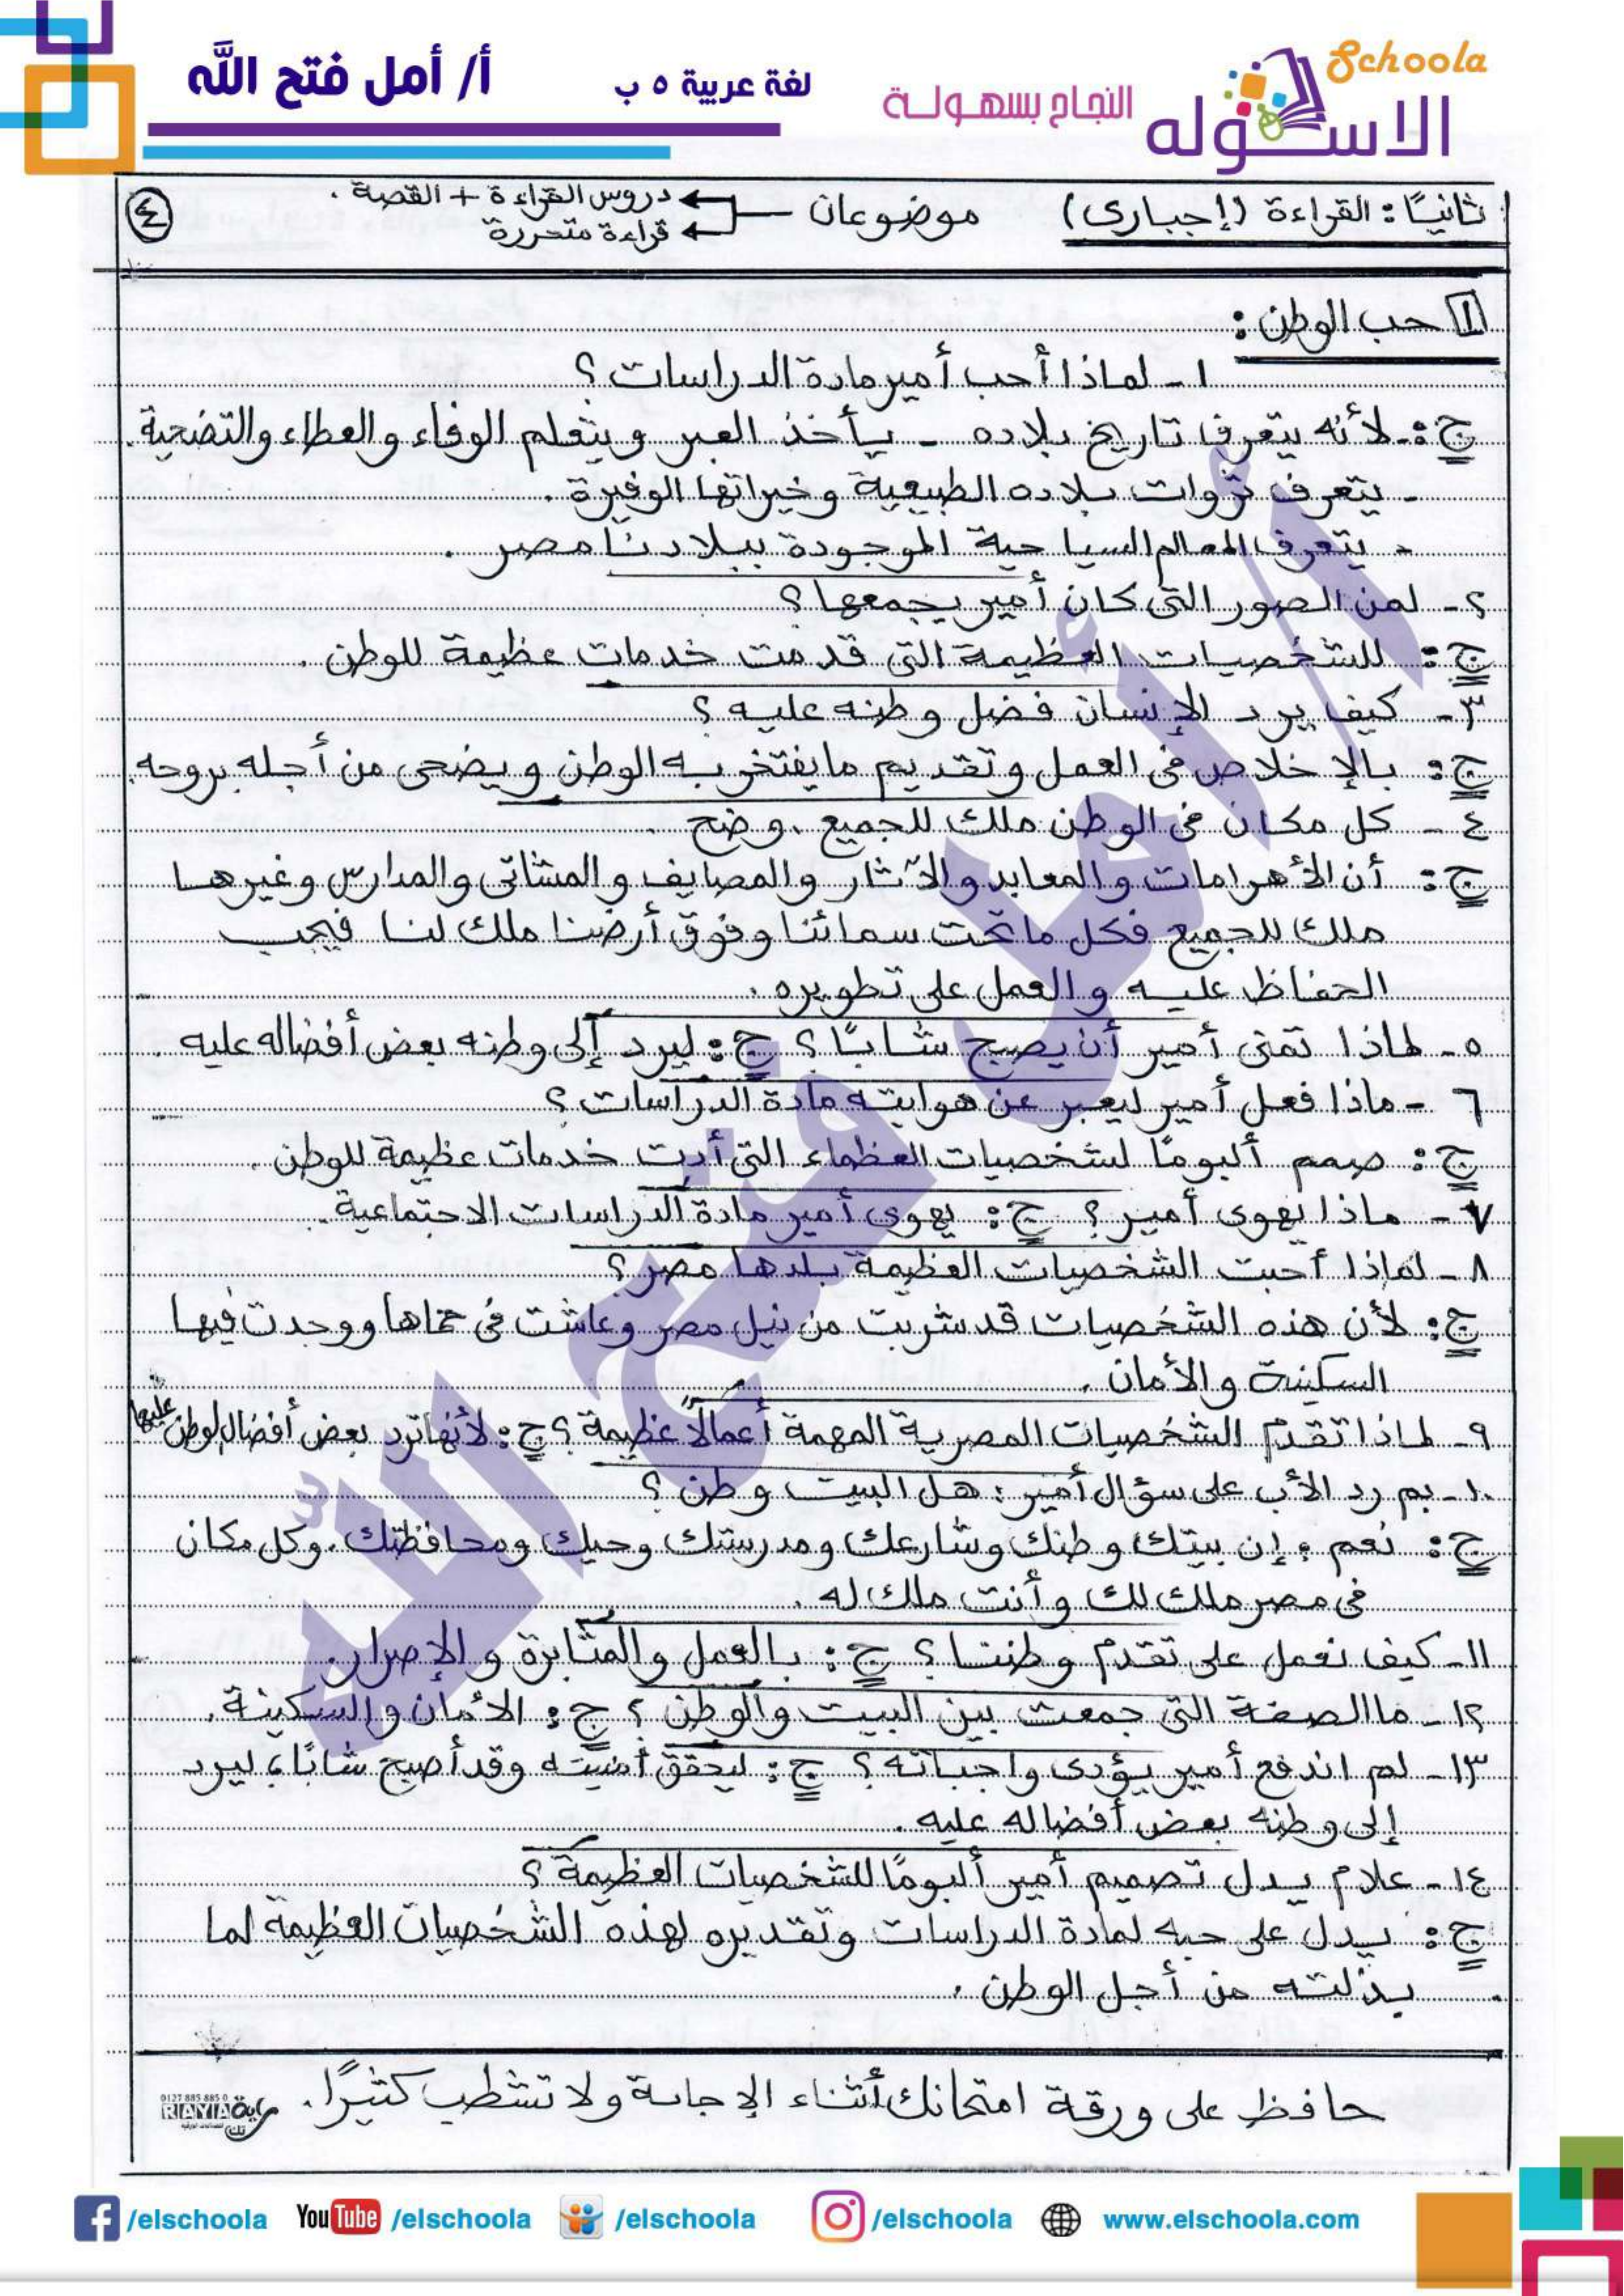 Schoola
الاسكوله
النجاح بسهولة
لغة عربية ٥ ب
أ/ أمل فتح الله
ثانيًا: القراءة (إجبارى) موضوعان
دروس القراءة + القصة .
قراءة متحررة
٤
١ حب الوطن :
١ - لماذا أحب أمير مادة الدراسات ؟
ج : لأنه يتعرف تاريخ بلاده - يأخذ العبر ويتعلم الوفاء والعطاء والتضحية .
- يتعرف ثروات بلاده الطبيعية وخيراتها الوفيرة .
- يتعرف المعالم السياحية الموجودة ببلادنا مصر .
٢ - لمن الصور التى كان أمير يجمعها ؟
ج : للشخصيات العظيمة التى قدمت خدمات عظيمة للوطن .
٣ - كيف يرد الإنسان فضل وطنه عليه ؟
ج : بالإخلاص فى العمل وتقديم ما يفتخر به الوطن ويضحى من أجله بروحه .
٤ - كل مكان فى الوطن ملك للجميع . وضح .
ج : أن الأهرامات والمعابد والآثار والمصايف والمشاتى والمدارس وغيرها
ملك للجميع فكل ما تحت سمائنا وفوق أرضنا ملك لنا فيجب
الحفاظ عليه والعمل على تطويره .
٥ - لماذا تمنى أمير أن يصبح شابًا ؟ ج : ليرد إلى وطنه بعض أفضاله عليه .
٦ - ماذا فعل أمير ليعبر عن هوايته مادة الدراسات ؟
ج : صمم ألبومًا لشخصيات العظماء التى أدت خدمات عظيمة للوطن .
٧ - ماذا يهوى أمير ؟ ج : يهوى أمير مادة الدراسات الاجتماعية .
٨ - لماذا أحبت الشخصيات العظيمة بلدها مصر ؟
ج : لأن هذه الشخصيات قد شربت من نيل مصر وعاشت فى حماها ووجدت فيها
السكينة والأمان .
٩ - لماذا تقدم الشخصيات المصرية المهمة أعمالًا عظيمة ؟ ج : لأنها ترد بعض أفضال الوطن عليها
١٠ - بم رد الأب على سؤال أمير : هل البيت وطن ؟
ج : نعم ، إن بيتك وطنك وشارعك ومدرستك وحيك ومحافظتك . وكل مكان
فى مصر ملك لك وأنت ملك له .
١١ - كيف نعمل على تقدم وطننا ؟ ج : بالعمل والمثابرة والإصرار .
١٢ - ما الصفة التى جمعت بين البيت والوطن ؟ ج : الأمان والسكينة .
١٣ - لم اندفع أمير يؤدى واجباته ؟ ج : ليحقق أمنيته وقد أصبح شابًا ، ليرد
إلى وطنه بعض أفضاله عليه .
١٤ - علام يدل تصميم أمير ألبومًا للشخصيات العظيمة ؟
ج : يدل على حبه لمادة الدراسات وتقديره لهذه الشخصيات العظيمة لما
بذلته من أجل الوطن .
حافظ على ورقة امتحانك أثناء الإجابة ولا تشطب كثيرًا .
0127 885 885 0
RAYIA
راية
أ/ أمل فتح الله
/elschoola
YouTube /elschoola
/elschoola
/elschoola
www.elschoola.com